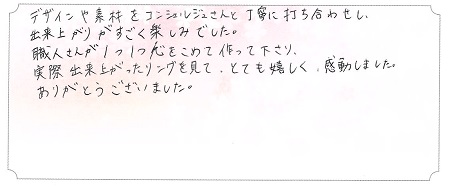 デザインや素材をコンシェルジュさんと丁寧に打ち合わせし、
出来上がりがすごく楽しみでした。
職人さんが1つ1つ心をこめて作って下さり、
実際出来上がったリングを見て、とても嬉しく、感動しました。
ありがとうございました。